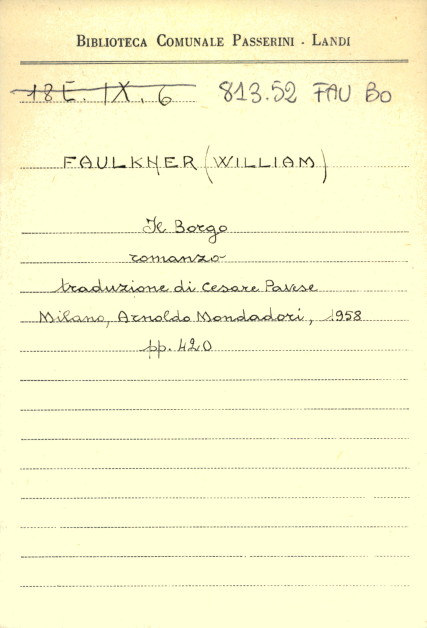 BIBLIOTECA COMUNALE PASSERINI - LANDI
18 E. IX. 6 813.52 FAU BO
FAULKNER (WILLIAM)
Il Borgo
romanzo
traduzione di Cesare Pavese
Milano, Arnoldo Mondadori, 1958
pp. 420